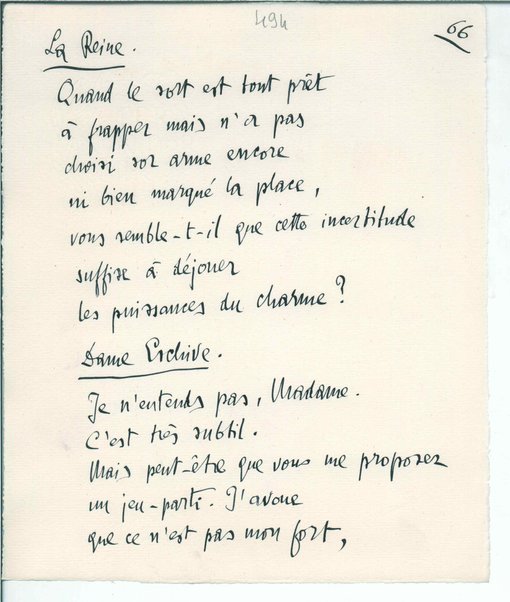 494
66
La Reine.
Quand le sort est tout prêt
à frapper mais n'a pas
choisi son arme encore
ni bien marqué la place,
vous semble-t-il que cette incertitude
suffise à déjouer
les puissances du charme ?
Dame Eschive.
Je n'entends pas, Madame.
C'est très subtil.
Mais peut-être que vous me proposez
un jeu-parti. J'avoue
que ce n'est pas mon fort,